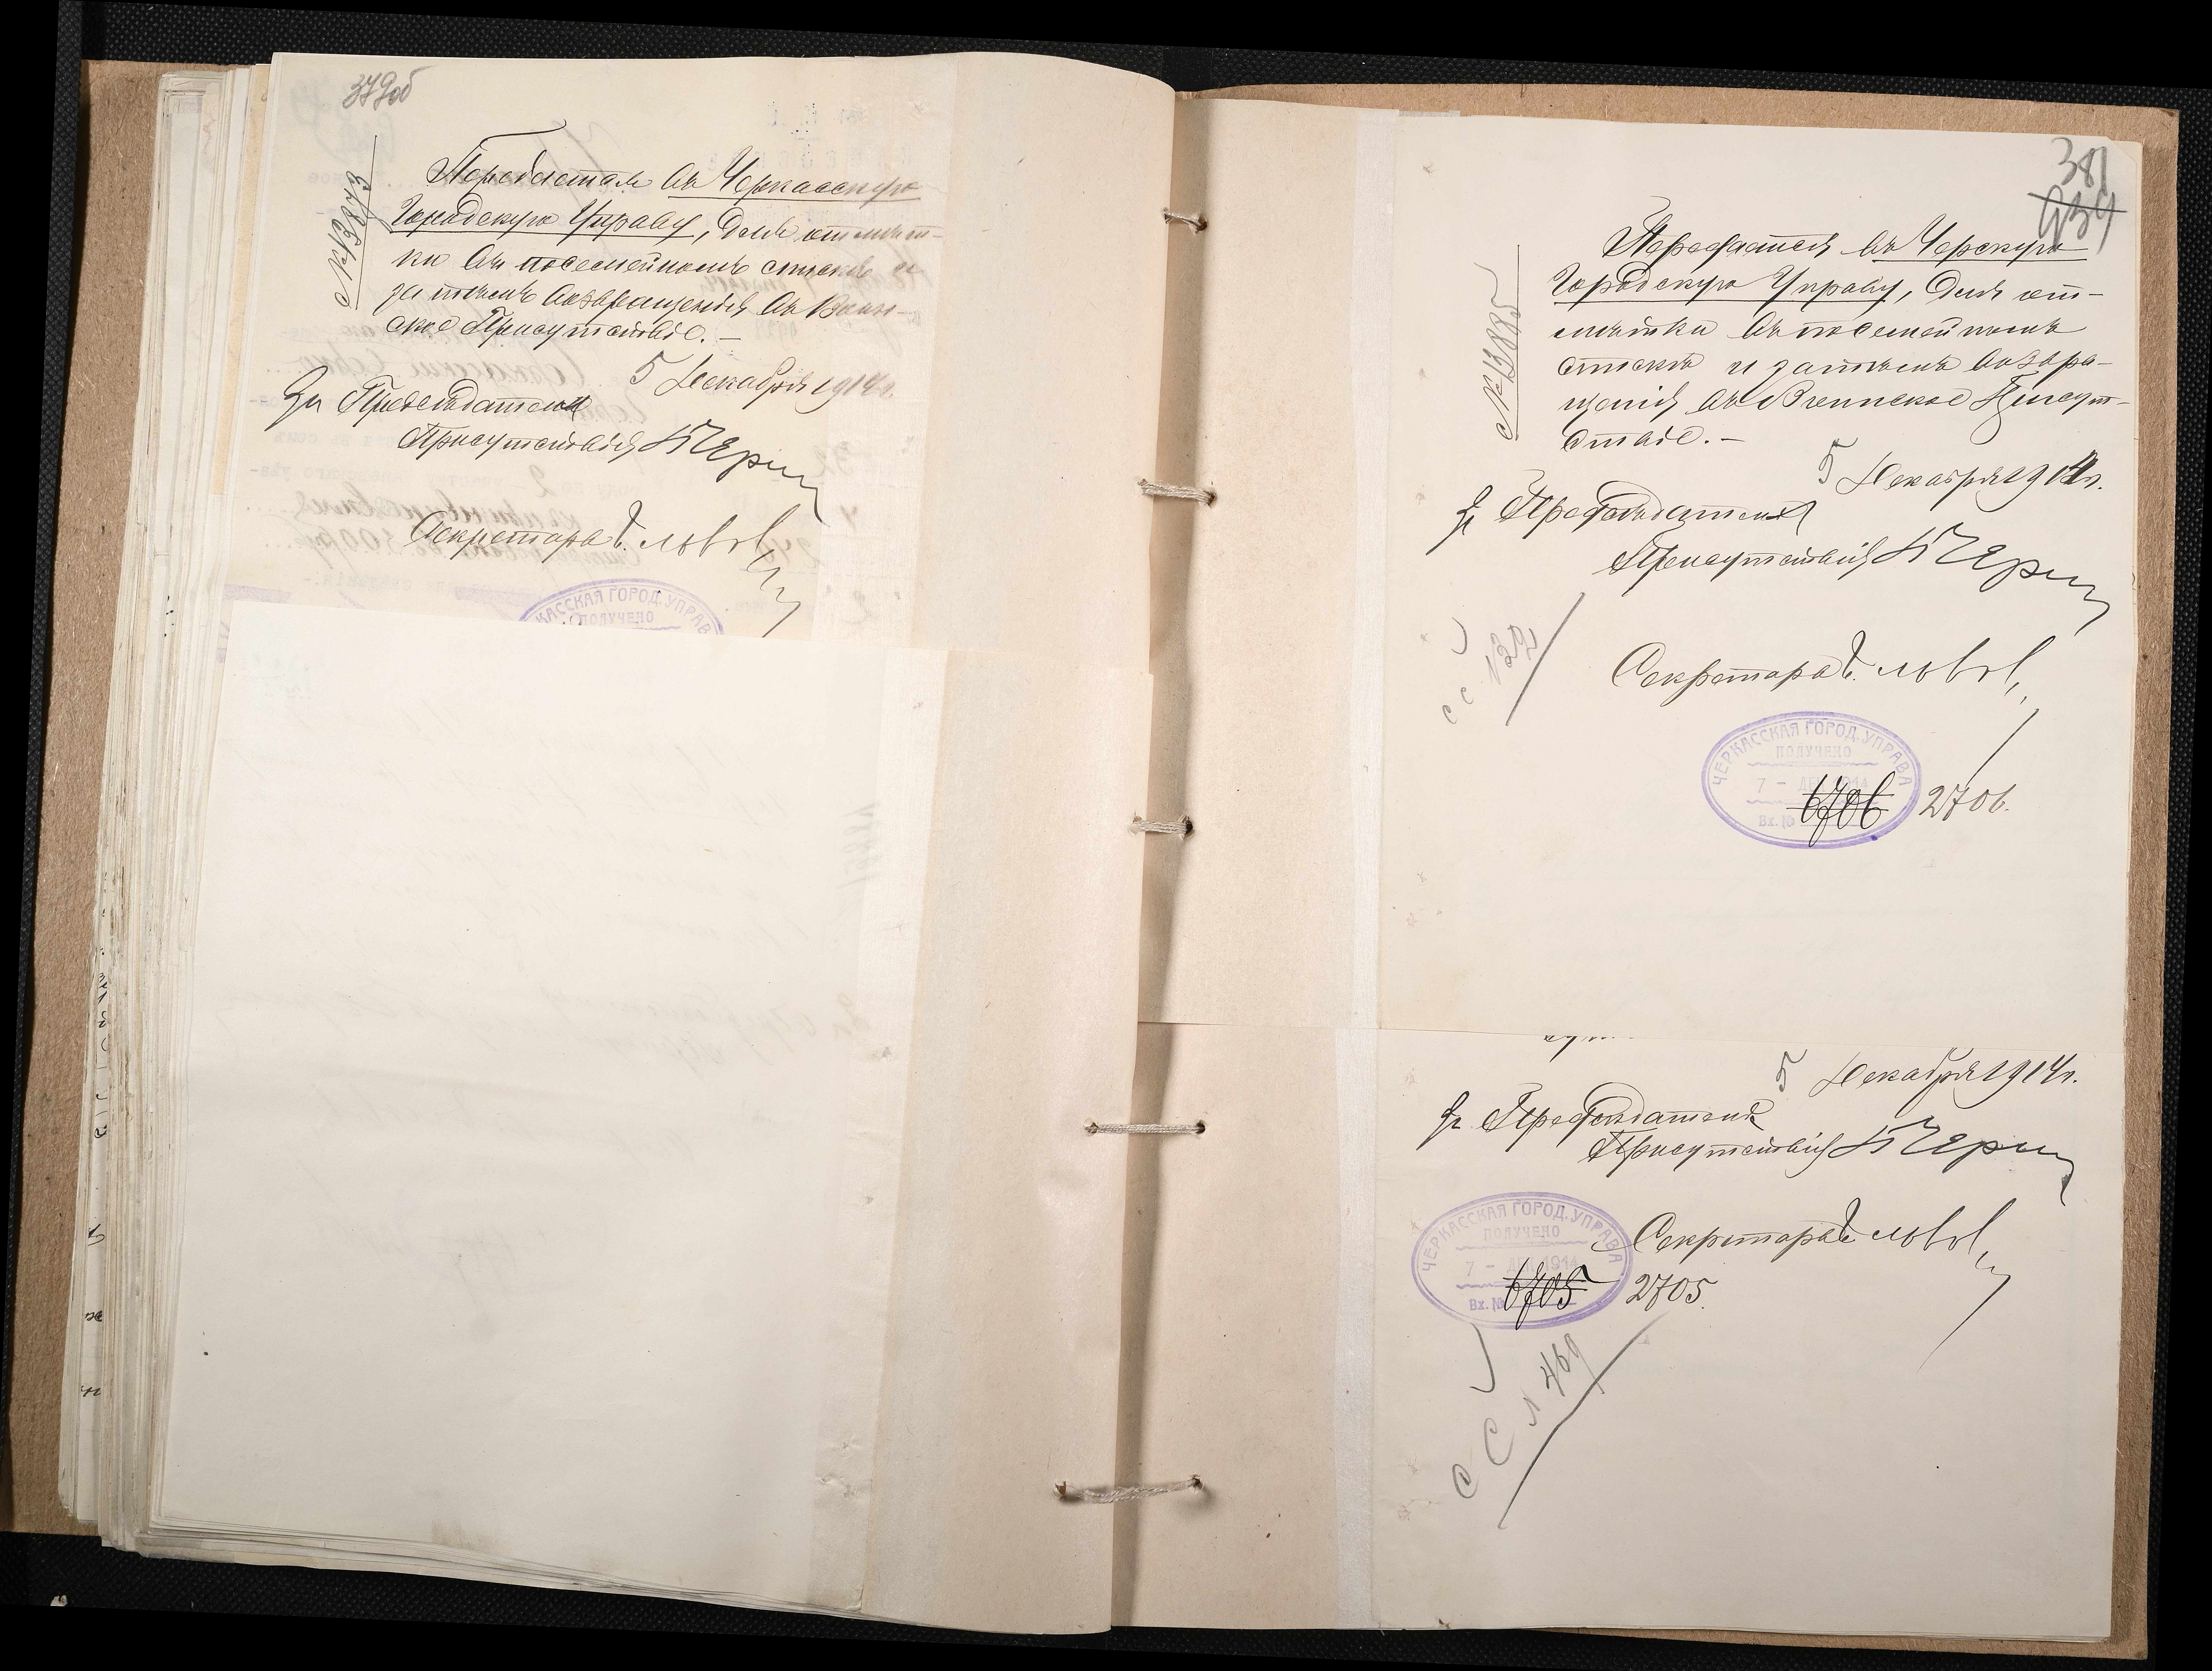 379об
№ 13873
Передается въ Черкасскую
Городскую Управу, для отмѣт-
ки въ посемейномъ спискѣ и
затѣмъ возвращенія въ Воин-
ское Присутствіе. —
5 Декабря 1914 г.
За Предсѣдателя
Присутствія
Секретарь
КАССКАЯ ГОРОД. УПРАВ
ПОЛУЧЕНО
381
939
№ 13885
Передается въ Черскую
Городскую Управу, для от-
мѣтки въ посемейномъ
спискѣ и затѣмъ возвра-
щенія въ Воинское Присут-
ствіе. —
5 Декабря 1914 г.
За Предсѣдателя
Присутствія
Секретарь
с с 132
ЧЕРКАССКАЯ ГОРОД. УПРАВА
ПОЛУЧЕНО
7 - ДЕК 1914
Вх. № 6706 2706.
5 Декабря 1914 г.
За Предсѣдателя
Присутствія
Секретарь
ЧЕРКАССКАЯ ГОРОД. УПРАВА
ПОЛУЧЕНО
7 - ДЕК 1914
Вх. № 6705 2705.
с С л 469